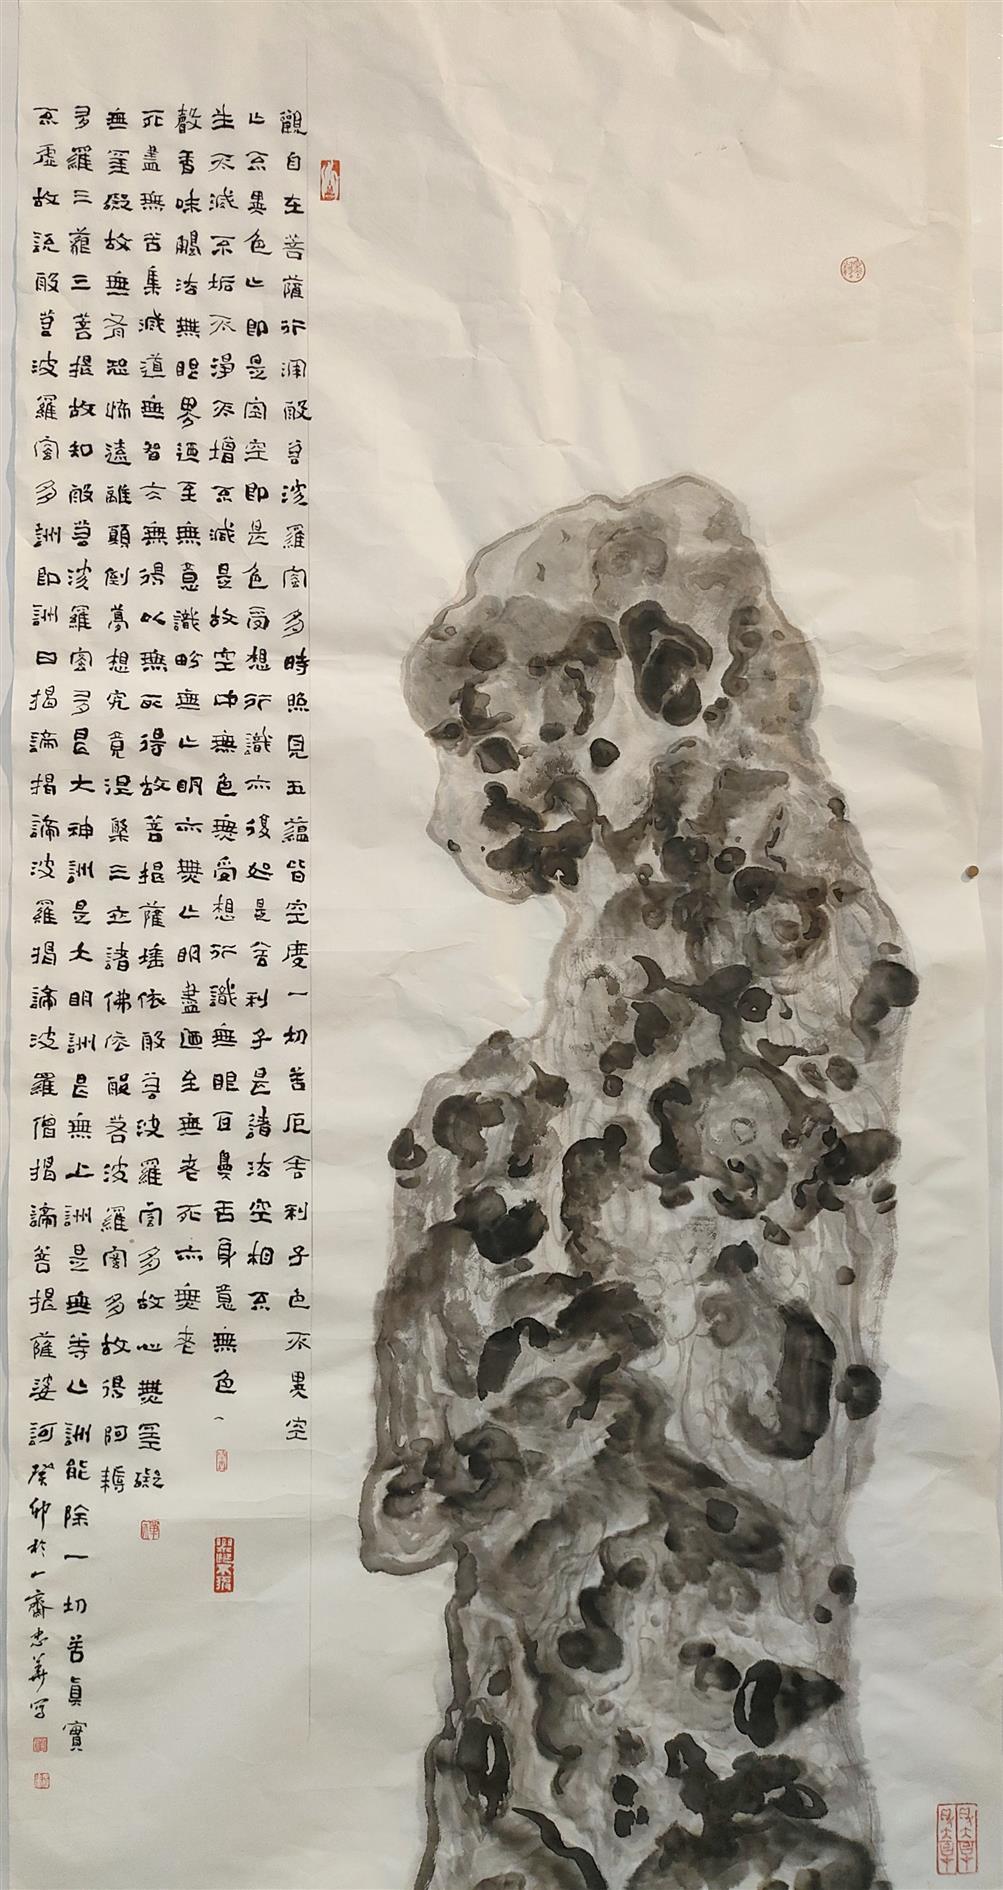 觀自在菩薩行深般若波羅蜜多時照見五蘊皆空度一切苦厄舍利子色不異空
〻不異色〻即是空空即是色受想行識亦復如是舍利子是諸法空相不
生不滅不垢不淨不增不減是故空中無色無受想行識無眼耳鼻舌身意無色
聲香味觸法無眼界迺至無意識界無〻明亦無〻明盡迺至無老死亦無老
死盡無苦集滅道無智亦無得以無所得故菩提薩埵依般若波羅蜜多故心無罣礙
無罣礙故無有恐怖遠離顛倒夢想究竟涅槃三世諸佛依般若波羅蜜多故得阿耨
多羅三藐三菩提故知般若波羅蜜多是大神詶是大明詶是無上詶是無等〻詶能除一切苦真實
不虛故説般若波羅蜜多詶即詶曰揭諦揭諦波羅揭諦波羅僧揭諦菩提薩婆訶癸卯於一齋忠華寫